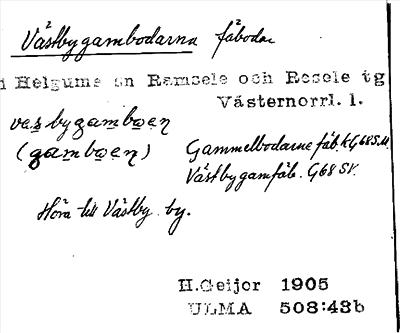 Västbygambodarna fäbodar
i Helgums sn Ramsele och Resele tg
Västernorrl. l.
vasbygamboen
(gamboen) Gammelbodarne fäb. kG68SV
Västbygamfäb. G68 SV.
Höra till Västby by.
H.Geijer 1905
ULMA 508:43b